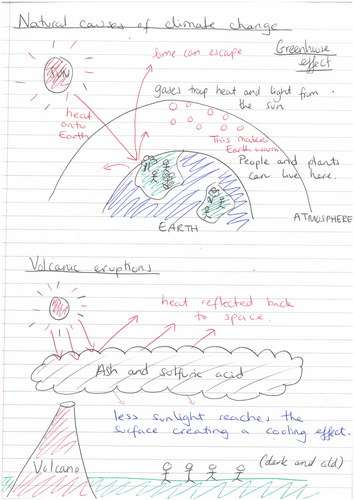 Natural causes of climate change
Greenhouse
effect
some can escape
Sun
gases trap heat and light from
the sun
heat
onto
Earth
This makes
Earth warm
People and plants
can live here.
EARTH
ATMOSPHERE
Volcanic eruptions
heat reflected back
to space.
Ash and sulfuric acid
less sunlight reaches the
surface creating a cooling effect.
Volcano
(dark and cold)